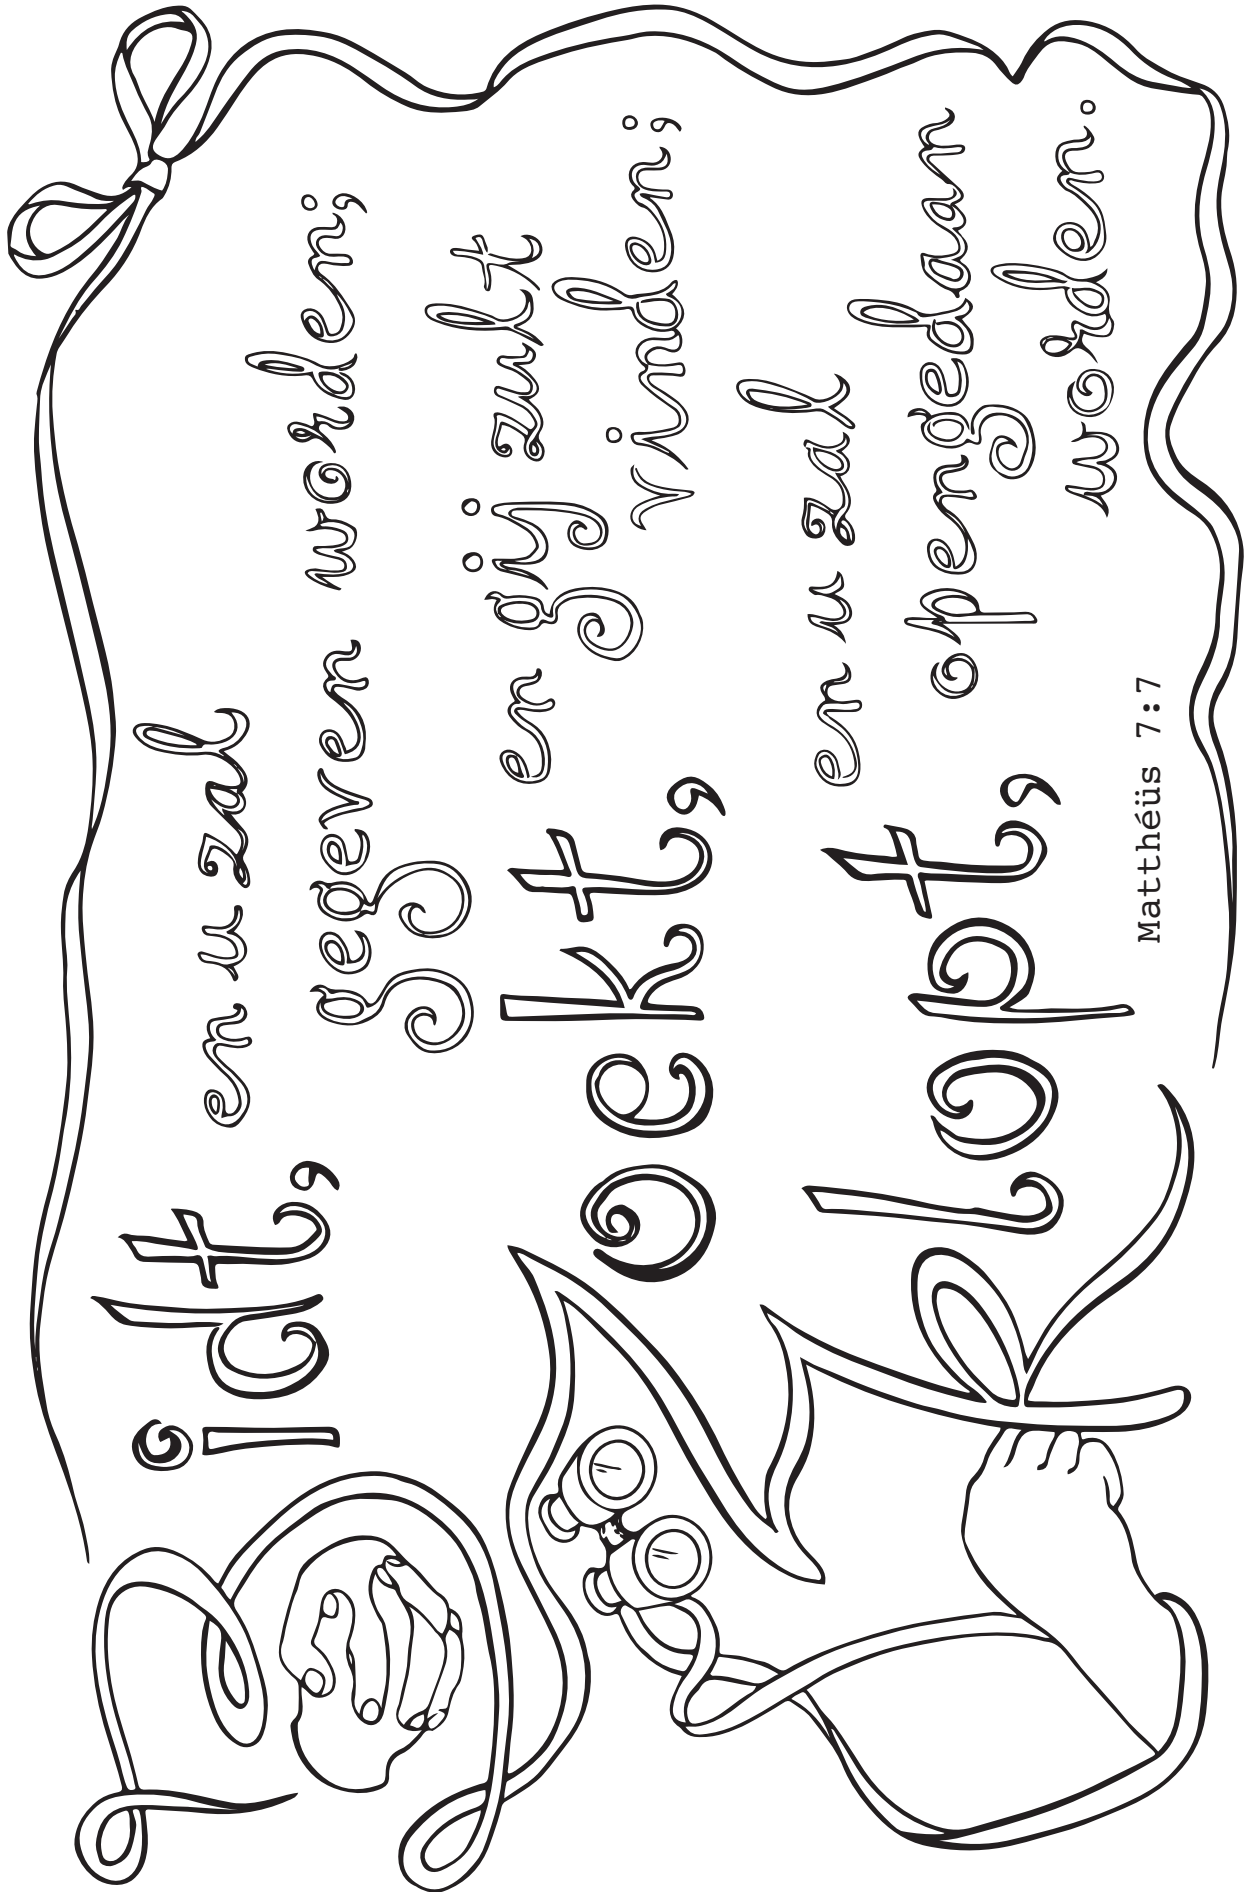 Bidt, en u zal
gegeven worden;
Zoekt, en gij zult
vinden;
Klopt, en u zal
opengedaan
worden.
Matthéüs 7:7